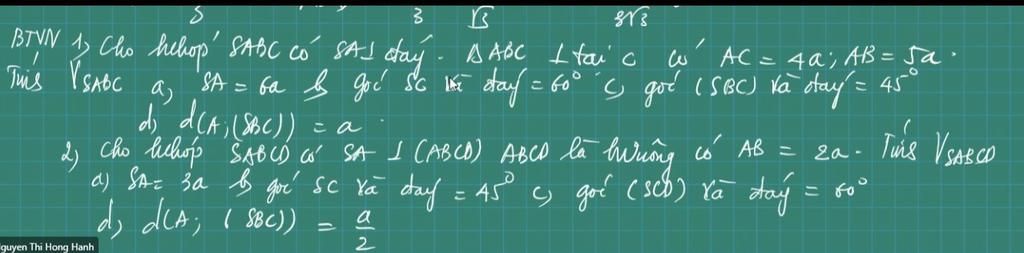 3 √3 8√3
BTVN 1, Cho hchóp SABC có SA⊥ đáy. ΔABC ⊥ tại C có AC = 4a; AB = 5a.
Tính V_SABC a, SA = 6a b, góc SC và đáy = 60° c, góc (SBC) và đáy = 45°
d, d(A;(SBC)) = a
2, Cho hchóp SABCD có SA ⊥ (ABCD) ABCD là hvuông có AB = 2a. Tính V_SABCD
a) SA = 3a b, góc SC và đáy = 45° c, góc (SCD) và đáy = 60°
d, d(A; (SBC)) = a/2
guyen Thi Hong Hanh